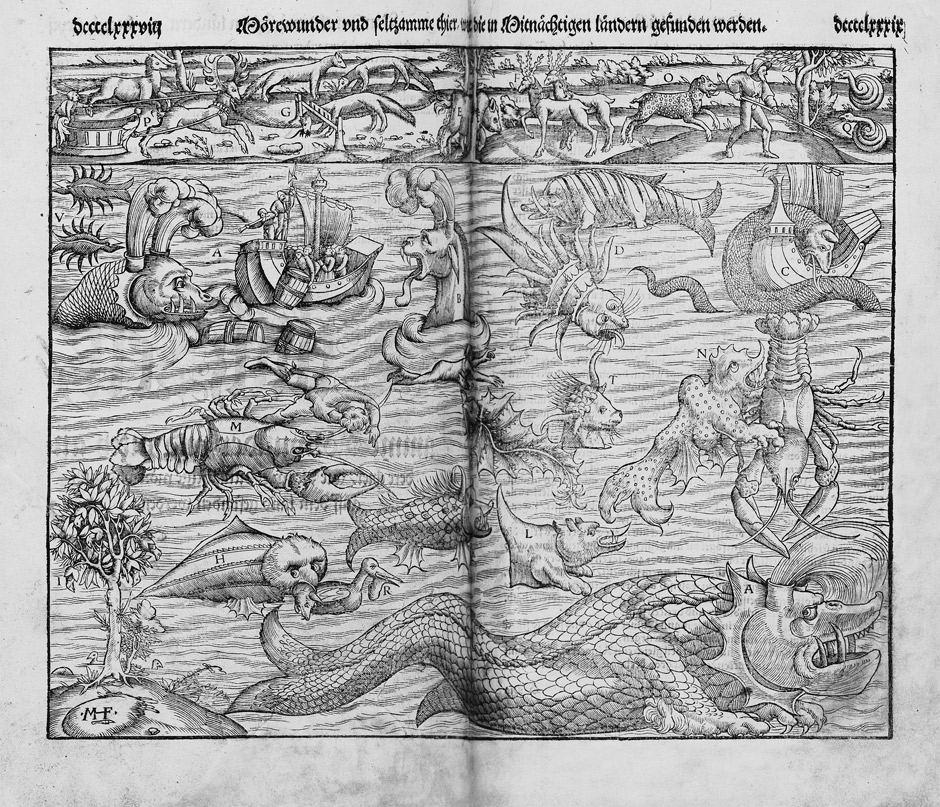 dcccclxxxviij Mörewunder vnd seltzamme thier, wie die in Mitnächtigen ländern gefunden werden. dcccclxxxix
O
P
G
Q
V
A
D
C
B
N
T
M
L
H
I
R
A
·MHF·